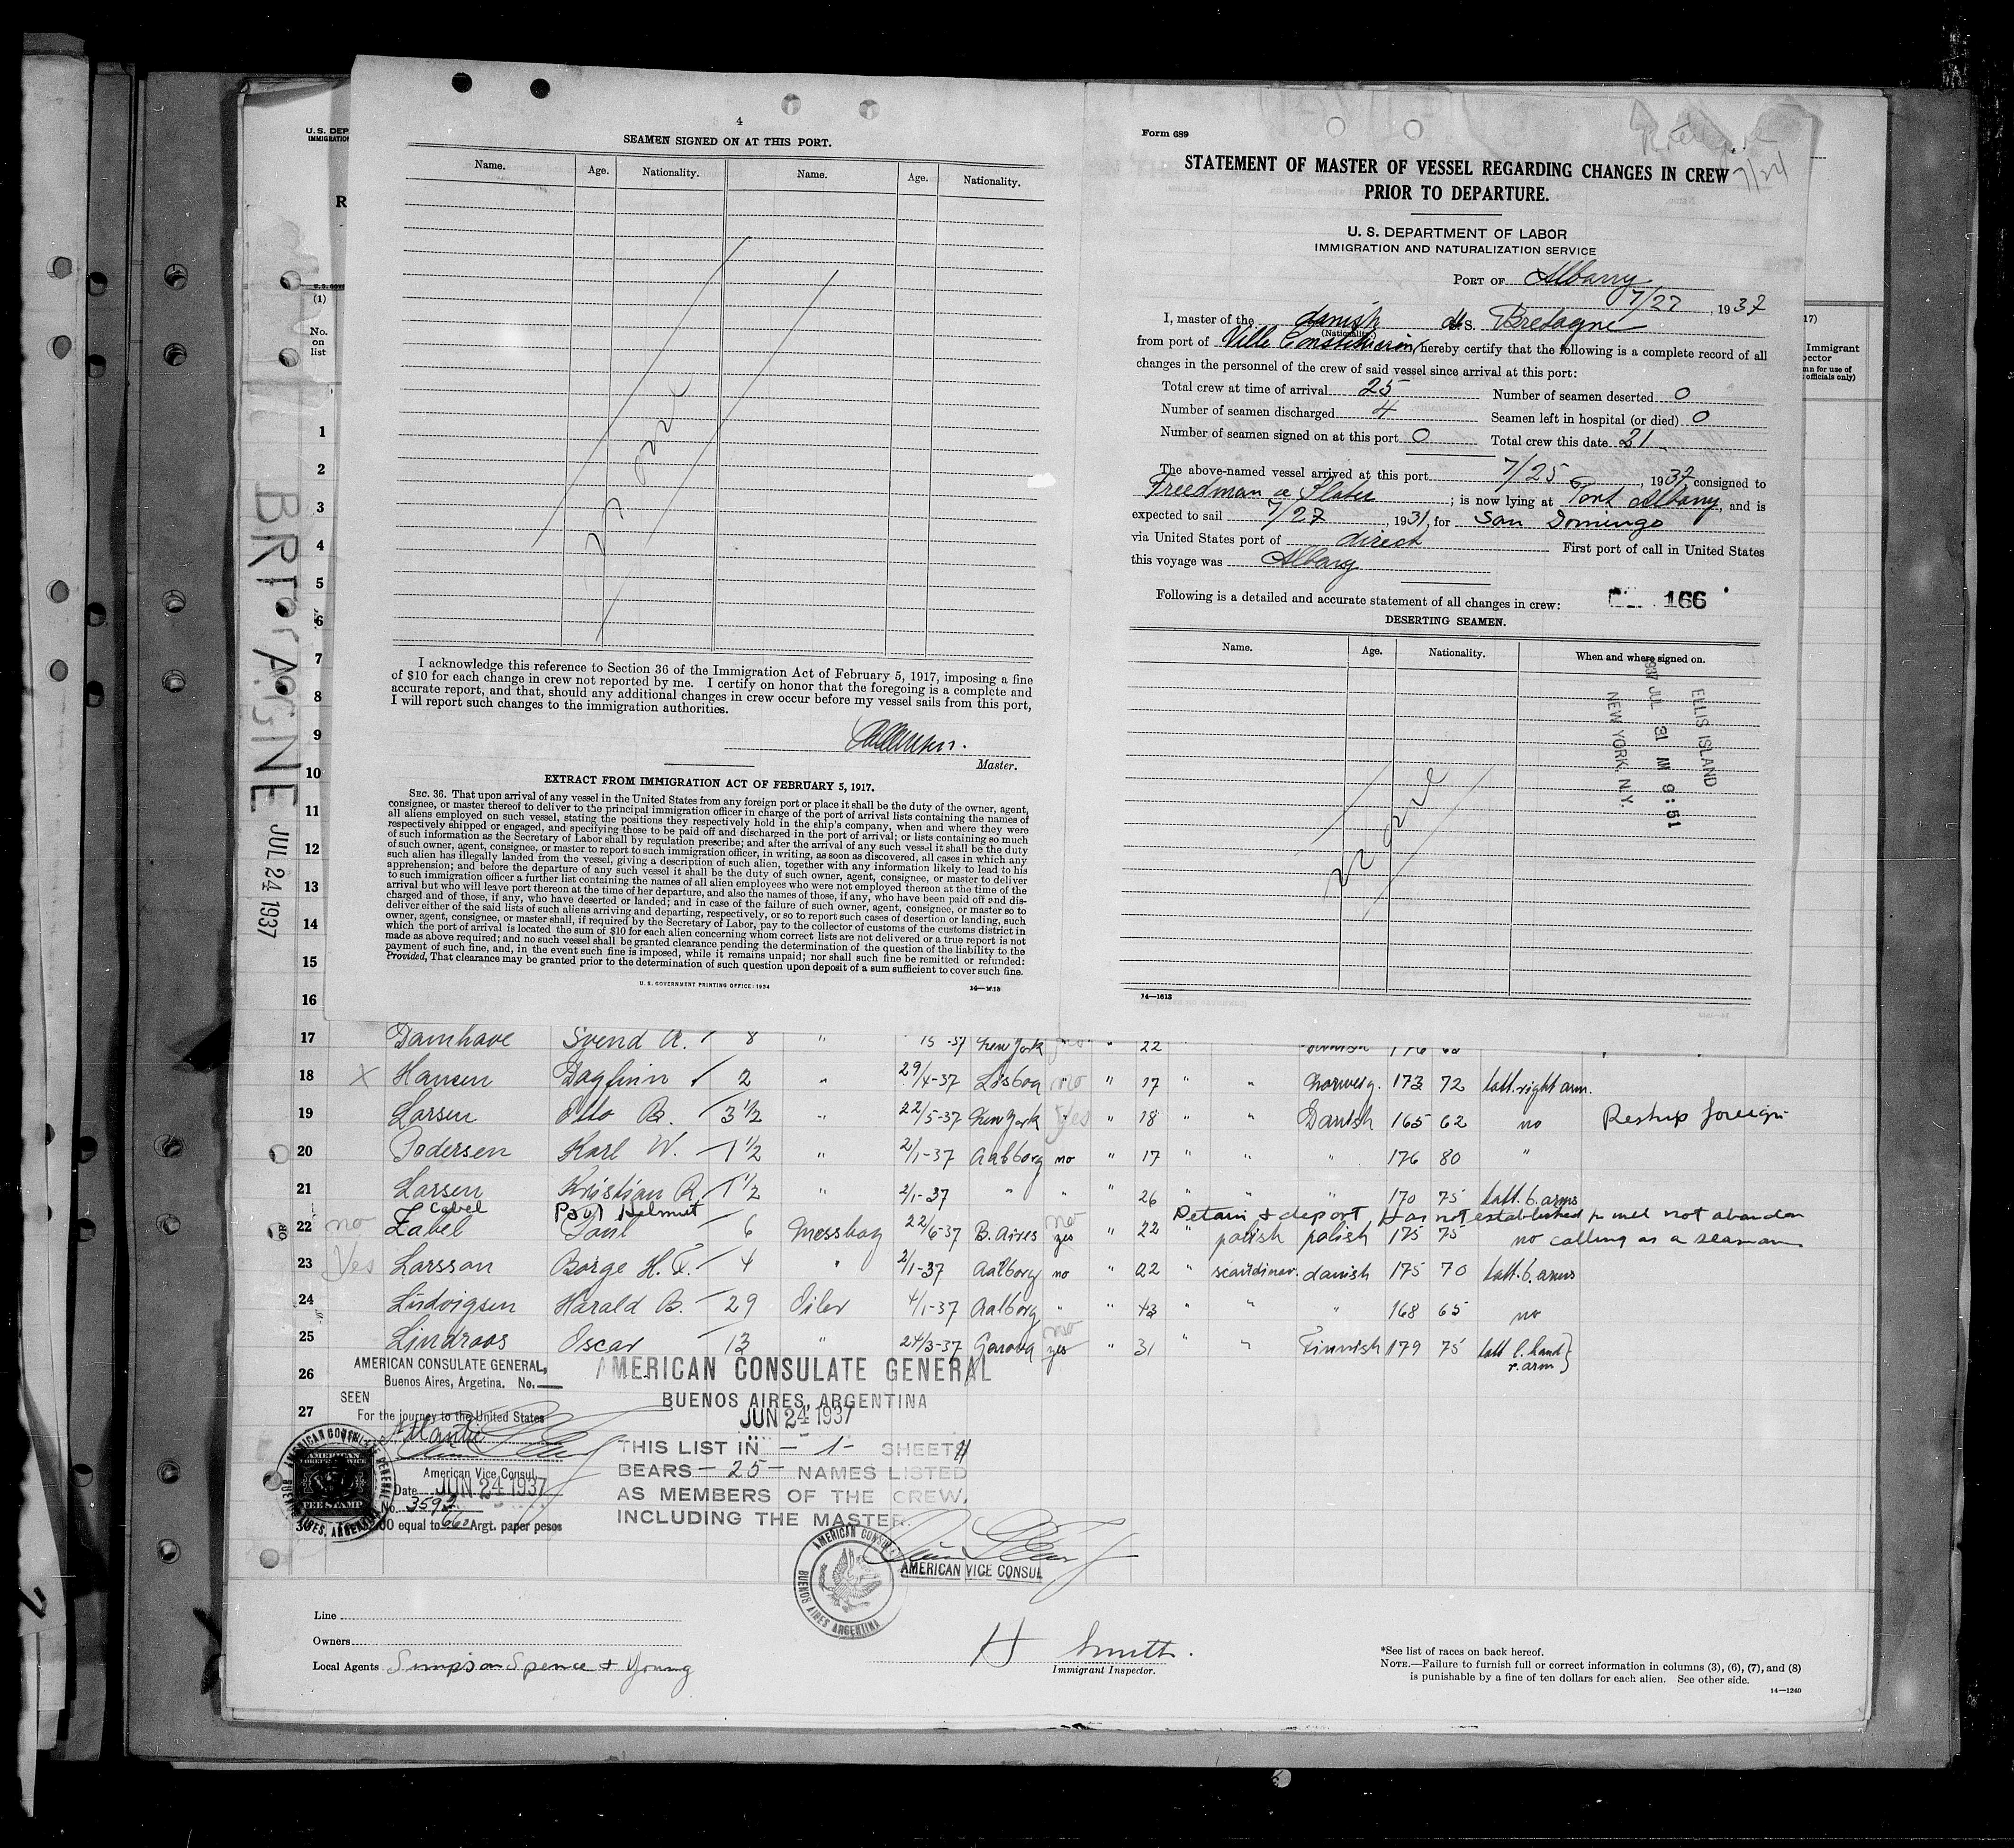 4
SEAMEN SIGNED ON AT THIS PORT.
Name. Age. Nationality. Name. Age. Nationality.
none
I acknowledge this reference to Section 36 of the Immigration Act of February 5, 1917, imposing a fine
of $10 for each change in crew not reported by me. I certify on honor that the foregoing is a complete and
accurate report, and that, should any additional changes in crew occur before my vessel sails from this port,
I will report such changes to the immigration authorities.
Master.
EXTRACT FROM IMMIGRATION ACT OF FEBRUARY 5, 1917.
SEC. 36. That upon arrival of any vessel in the United States from any foreign port or place it shall be the duty of the owner, agent,
consignee, or master thereof to deliver to the principal immigration officer in charge of the port of arrival lists containing the names of
all aliens employed on such vessel, stating the positions they respectively hold in the ship's company, when and where they were
respectively shipped or engaged, and specifying those to be paid off and discharged in the port of arrival; or lists containing so much
of such information as the Secretary of Labor shall by regulation prescribe; and after the arrival of any such vessel it shall be the duty
of such owner, agent, consignee, or master to report to such immigration officer, in writing, as soon as discovered, all cases in which any
such alien has illegally landed from the vessel, giving a description of such alien, together with any information likely to lead to his
apprehension; and before the departure of any such vessel it shall be the duty of such owner, agent, consignee, or master to deliver
to such immigration officer a further list containing the names of all alien employees who were not employed thereon at the time of the
arrival but who will leave port thereon at the time of her departure, and also the names of those, if any, who have been paid off and dis-
charged and of those, if any, who have deserted or landed; and in case of the failure of such owner, agent, consignee, or master so to
deliver either of the said lists of such aliens arriving and departing, respectively, or so to report such cases of desertion or landing, such
owner, agent, consignee, or master shall, if required by the Secretary of Labor, pay to the collector of customs of the customs district in
which the port of arrival is located the sum of $10 for each alien concerning whom correct lists are not delivered or a true report is not
made as above required; and no such vessel shall be granted clearance pending the determination of the question of the liability to the
payment of such fine, and, in the event such fine is imposed, while it remains unpaid; nor shall such fine be remitted or refunded:
Provided, That clearance may be granted prior to the determination of such question upon deposit of a sum sufficient to cover such fine.
U. S. GOVERNMENT PRINTING OFFICE: 1934 14—1613
Form 689
7/24
STATEMENT OF MASTER OF VESSEL REGARDING CHANGES IN CREW
PRIOR TO DEPARTURE.
U. S. DEPARTMENT OF LABOR
IMMIGRATION AND NATURALIZATION SERVICE
PORT OF Albany
7/27, 1937
I, master of the danish S. Bretagne
(Nationality)
from port of Ville Constitucion, hereby certify that the following is a complete record of all
changes in the personnel of the crew of said vessel since arrival at this port:
Total crew at time of arrival 25 Number of seamen deserted 0
Number of seamen discharged 4 Seamen left in hospital (or died) 0
Number of seamen signed on at this port 0 Total crew this date 21
The above-named vessel arrived at this port 7/25, 1937 consigned to
Freedman & Slater; is now lying at Port Albany, and is
expected to sail 7/27, 1931, for San Domingo
via United States port of direct First port of call in United States
this voyage was Albany
Following is a detailed and accurate statement of all changes in crew: 166
DESERTING SEAMEN.
Name. Age. Nationality. When and where signed on.
none
ELLIS ISLAND
1937 JUL 31 AM 9:51
NEW YORK, N.Y.
14—1613
U. S. DEP
IMMIGRATION
R
(1)
No.
on
list
17)
Immigrant
pector
mn for use of
officials only)
BRETAGNE JUL 24 1937
1
2
3
4
5
6
7
8
9
10
11
12
13
14
15
16
17 Damhave Svend A. 8 " 15-37 New York " 22
18 x Hansen Dagfinn 2 " 29/4-37 Lisboa no " 17 " " Norweig. 173 72 tatt. right arm.
19 Larsen Otto B. 3 1/2 " 22/5-37 New York Yes " 18 " " Danish 165 62 no Reship foreign
20 Pedersen Karl W. 1 1/2 " 2/1-37 Aalborg no " 17 " " " 176 80 "
21 Larsen Kristian R. 1 1/2 " 2/1-37 " " " 26 " " " 170 75 tatt. b. arms
Cabel Paul Helmut no Detain & deport Has not established he will not abandon
22 no Zabel Paul 6 Messboy 22/6-37 B. Aires yes " 22 " polish polish 175 75 no calling as a seaman
23 Yes Larsson Börge H. 4 " 2/1-37 Aalborg no " 22 " scandinav. danish 175 70 tatt. b. arms
24 Ludvigsen Harald B. 29 Oiler 4/1-37 Aalborg " " 43 " " " 168 65 no
25 Lindroos Oscar 13 " 24/3-37 Genova no yes " 31 " " Finnish 179 75 tatt l. hand
r. arm
26
27
AMERICAN CONSULATE GENERAL,
Buenos Aires, Argetina. No.
SEEN
For the journey to the United States
American Vice Consul
Date JUN 24 1937
No. 3593
00 equal to Argt. paper pesos
AMERICAN CONSULATE GENERAL
BUENOS AIRES, ARGENTINA
AMERICAN
FOREIGN SERVICE
FEE STAMP
AMERICAN CONSULATE GENERAL
BUENOS AIRES, ARGENTINA
JUN 24 1937
THIS LIST IN — 1 — SHEETS
BEARS — 25 — NAMES LISTED
AS MEMBERS OF THE CREW,
INCLUDING THE MASTER.
AMERICAN VICE CONSUL
AMERICAN CONSUL
BUENOS AIRES ARGENTINA
Line
Owners
Local Agents Simpson Spence & Young
H Smith.
Immigrant Inspector.
*See list of races on back hereof.
NOTE.—Failure to furnish full or correct information in columns (3), (6), (7), and (8)
is punishable by a fine of ten dollars for each alien. See other side.
14—1240